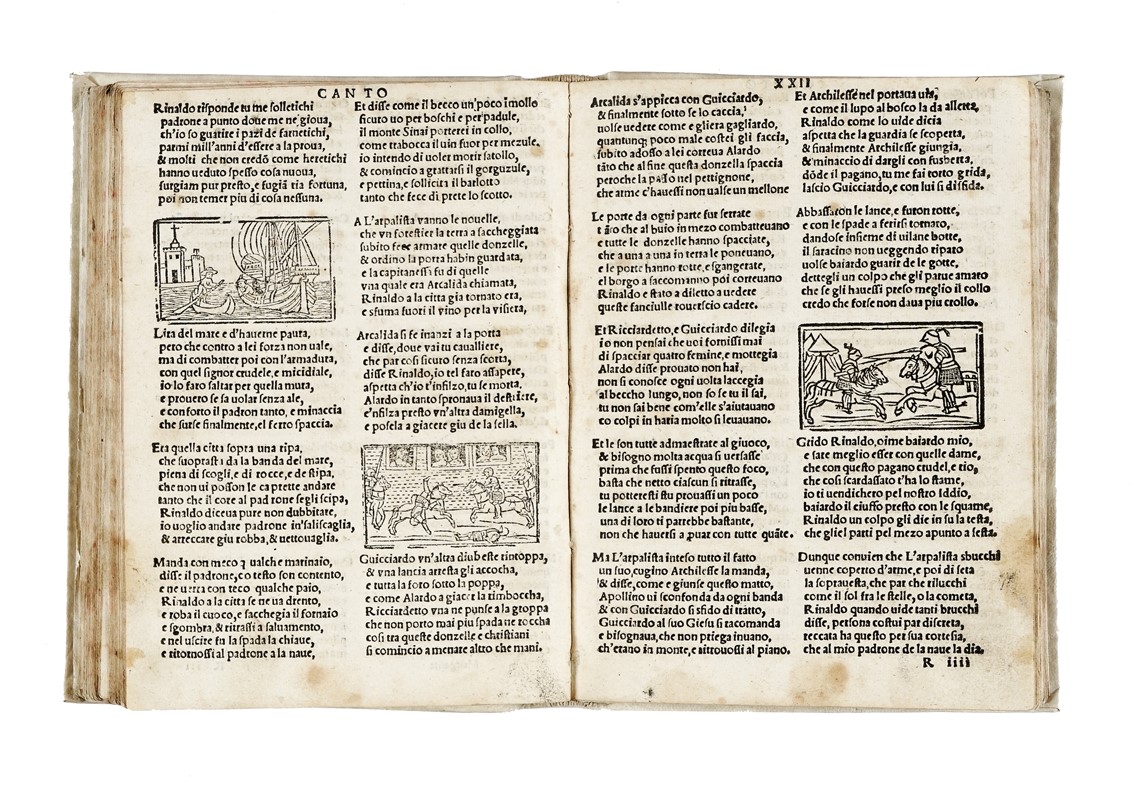 CANTO
Rinaldo risponde tu me solletichi
padrone a punto doue me ne gioua,
ch'io so guarire i pazi de farnetichi,
parmi mill'anni d'essere a la proua,
& molti che non credō come heretichi
hanno ueduto spesso cosa nuoua,
surgiam pur presto, e fugiā ria fortuna,
poi non temer piu di cosa nessuna.
Lira del mare e d'hauerne paura,
pero che contro a lei forza non uale,
ma di combatter poi con l'armadura,
con quel signor crudele, e micidiale,
io lo faro saltar per quella mura,
e prouero se sa uolar senza ale,
e conforto il padron tanto, e minaccia
che surse finalmente, el ferro spaccia.
Era quella citta sopra una ripa,
che soprasta da la banda del mare,
piena di scogli, e di rocce, e de stipa,
che non ui posson le caprette andare
tanto che il core al padrone segli scipa,
Rinaldo diceua pure non dubbitare,
io uoglio andare padrone in'saliscaglia,
& arreccare giu robba, & uettouaglia.
Manda con meco qualche marinaio,
disse il padrone, co testo son contento,
e ne uerra con teco qualche paio,
Rinaldo a la citta se ne ua drento,
e roba il cuoco, e sacchegia il fornaio
e sgombra, & ritrassi a saluamento,
e nel uscire fu la spada la chiaue,
e ritornossi al padrone a la naue,
Et disse come il becco un'poco imollo
sicuro uo per boschi e per'padule,
il monte Sinai porterei in collo,
come trabocca il uin fuor per mezule,
io intendo di uoler morir satollo,
& comincio a grattarsi il gorguzule,
e pettina, e sollicita il barlotto
tanto che fece di prete lo scotto.
A L'arpalista vanno le nouelle,
che vn forestier la terra a saccheggiata
subito fece armare quelle donzelle,
& ordino la porta habin guardata,
e la capitanessa fu di quelle
vna quale era Arcalida chiamata,
Rinaldo a la citta gia tornato era,
e sfuma fuori il vino per la visiera,
Arcalida si fe inanzi a la porta
e disse, doue vai tu caualliere,
che par cosi sicuro senza scorta,
disse Rinaldo, io tel faro assapere,
aspetta ch'io t'infilzo, tu se morta,
Alardo in tanto spronaua il destriere,
e'nfilza presto vn'altra damigella,
e posela a giacere giu de la sella.
Guicciardo vn'altra diubeste rintoppa,
& vna lancia arresta gli accocha,
e tutta la foro sotto la poppa,
e come Alardo a giacer la rimboccha,
Ricciardetto vna ne punse a la groppa
che non porto mai piu spada ne roccha
cosi tra queste donzelle e christiani
si comincio a menare altro che mani.
XXII
Arcalida s'appicca con Guicciardo,
& finalmente sotto se lo caccia,
uolse uedere come egliera gagliardo,
quantunq; poco male costei gli faccia,
subito adosso a lei correua Alardo
tāto che al fine questa donzella spaccia
peroche la passo nel pettignone,
che arme c'hauessi non ualse un mellone
Le porte da ogni parte fur serrate
tāto che al buio in mezo combatteuano
e tutte le donzelle hanno spacciate,
che a una a una in terra le poneuano,
e le porte hanno rotte, e sgangerate,
el borgo a saccomanno poi correuano
Rinaldo e stato a diletto a uedere
queste fanciulle rouerscio cadere.
Et Ricciardetto, e Guicciardo dilegia
io non pensai che uoi fornissi mai
di spacciar quatro femine, e mottegia
Alardo disse prouato non hai,
non si conosce ogni uolta laccegia
al beccho lungo, non so se tu il sai,
tu non sai bene com'elle s'aiutauano
co colpi in haria molto si leuauano.
Et le son tutte admaestrate al giuoco,
& bisogno molta acqua si uersasse
prima che fussi spento questo foco,
basta che netto ciascun si ritrasse,
tu potteresti stu prouassi un poco
le lance a le bandiere poi piu basse,
una di loro ti parrebbe bastante,
non che hauersi a prouar con tutte quāte.
Ma L'arpalista inteso tutto il fatto
un suo cugino Archilesse la manda,
& disse, come e giunse questo matto,
Apollino ui sconfonda da ogni banda
& con Guicciardo si sfido di tratto,
Guicciardo al suo Giesu si racomanda
e bisognaua, che non priega inuano,
ch'erano in monte, e ritrouossi al piano.
Et Archilesse nel portaua uia,
e come il lupo al bosco la da alletta,
Rinaldo come lo uide dicia
aspetta che la guardia se scoperta,
& finalmente Archilesse giungia,
& minaccio di dargli con fusberta,
dōde il pagano, tu me fai torto grida,
lascio Guicciardo, e con lui si disfida.
Abbassaron le lance, e furon rotte,
e con le spade a ferirsi tornato,
dandose insieme di uilane botte,
il saracino non ueggendo riparo
uolse baiardo guarir de le gotte,
dettegli un colpo che gli parue amaro
che se gli hauessi preso meglio il collo
credo che forse non daua piu crollo.
Grido Rinaldo, oime baiardo mio,
e fare meglio esser con quelle dame,
che con questo pagano crudel, e rio,
che cosi scardassato t'ha lo stame,
io ti uendichero pel nostro Iddio,
baiardo il ciuffo presto con le squame,
Rinaldo un colpo gli die in su la testa,
che gliel parti pel mezo apunto a sesta.
Dunque conuien che L'arpalista sbucchi
uenne coperto d'arme, e poi di seta
la soprauesta, che par che rilucchi
come il sol fra le stelle, o la cometa,
Rinaldo quando uide tanti brucchi
disse, persona costui par discreta,
reccata ha questo per sua cortesia,
che al mio padrone de la naue la dia.
R iiii